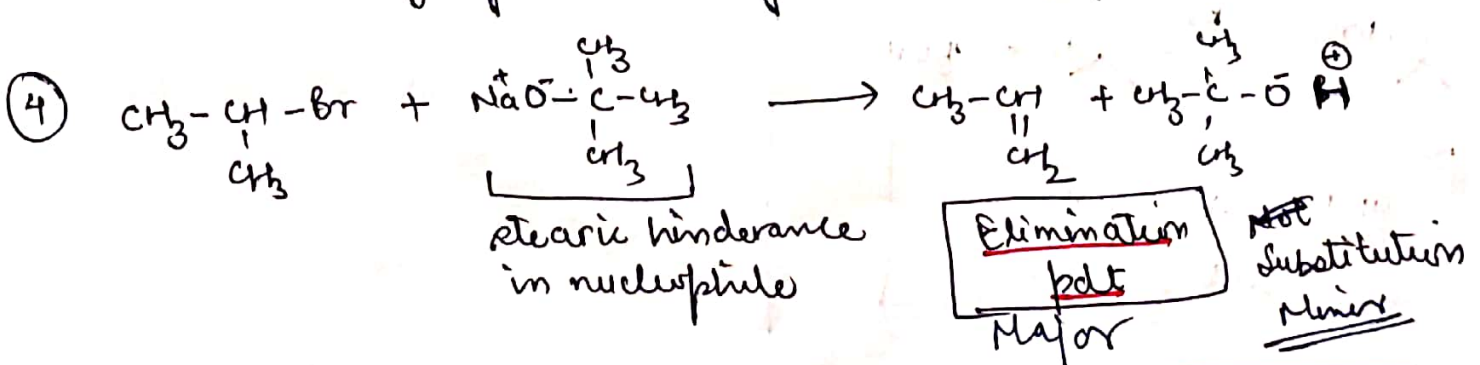 CH3
CH3
④ CH3-CH-Br + Na+O-–C-CH3 → CH3-CH + CH3-C-O- H⊕
CH3 CH3 CH2 CH3
stearic hinderance
in nucleophile
Elimination
pdt
Major
Not
Substitution
Minor